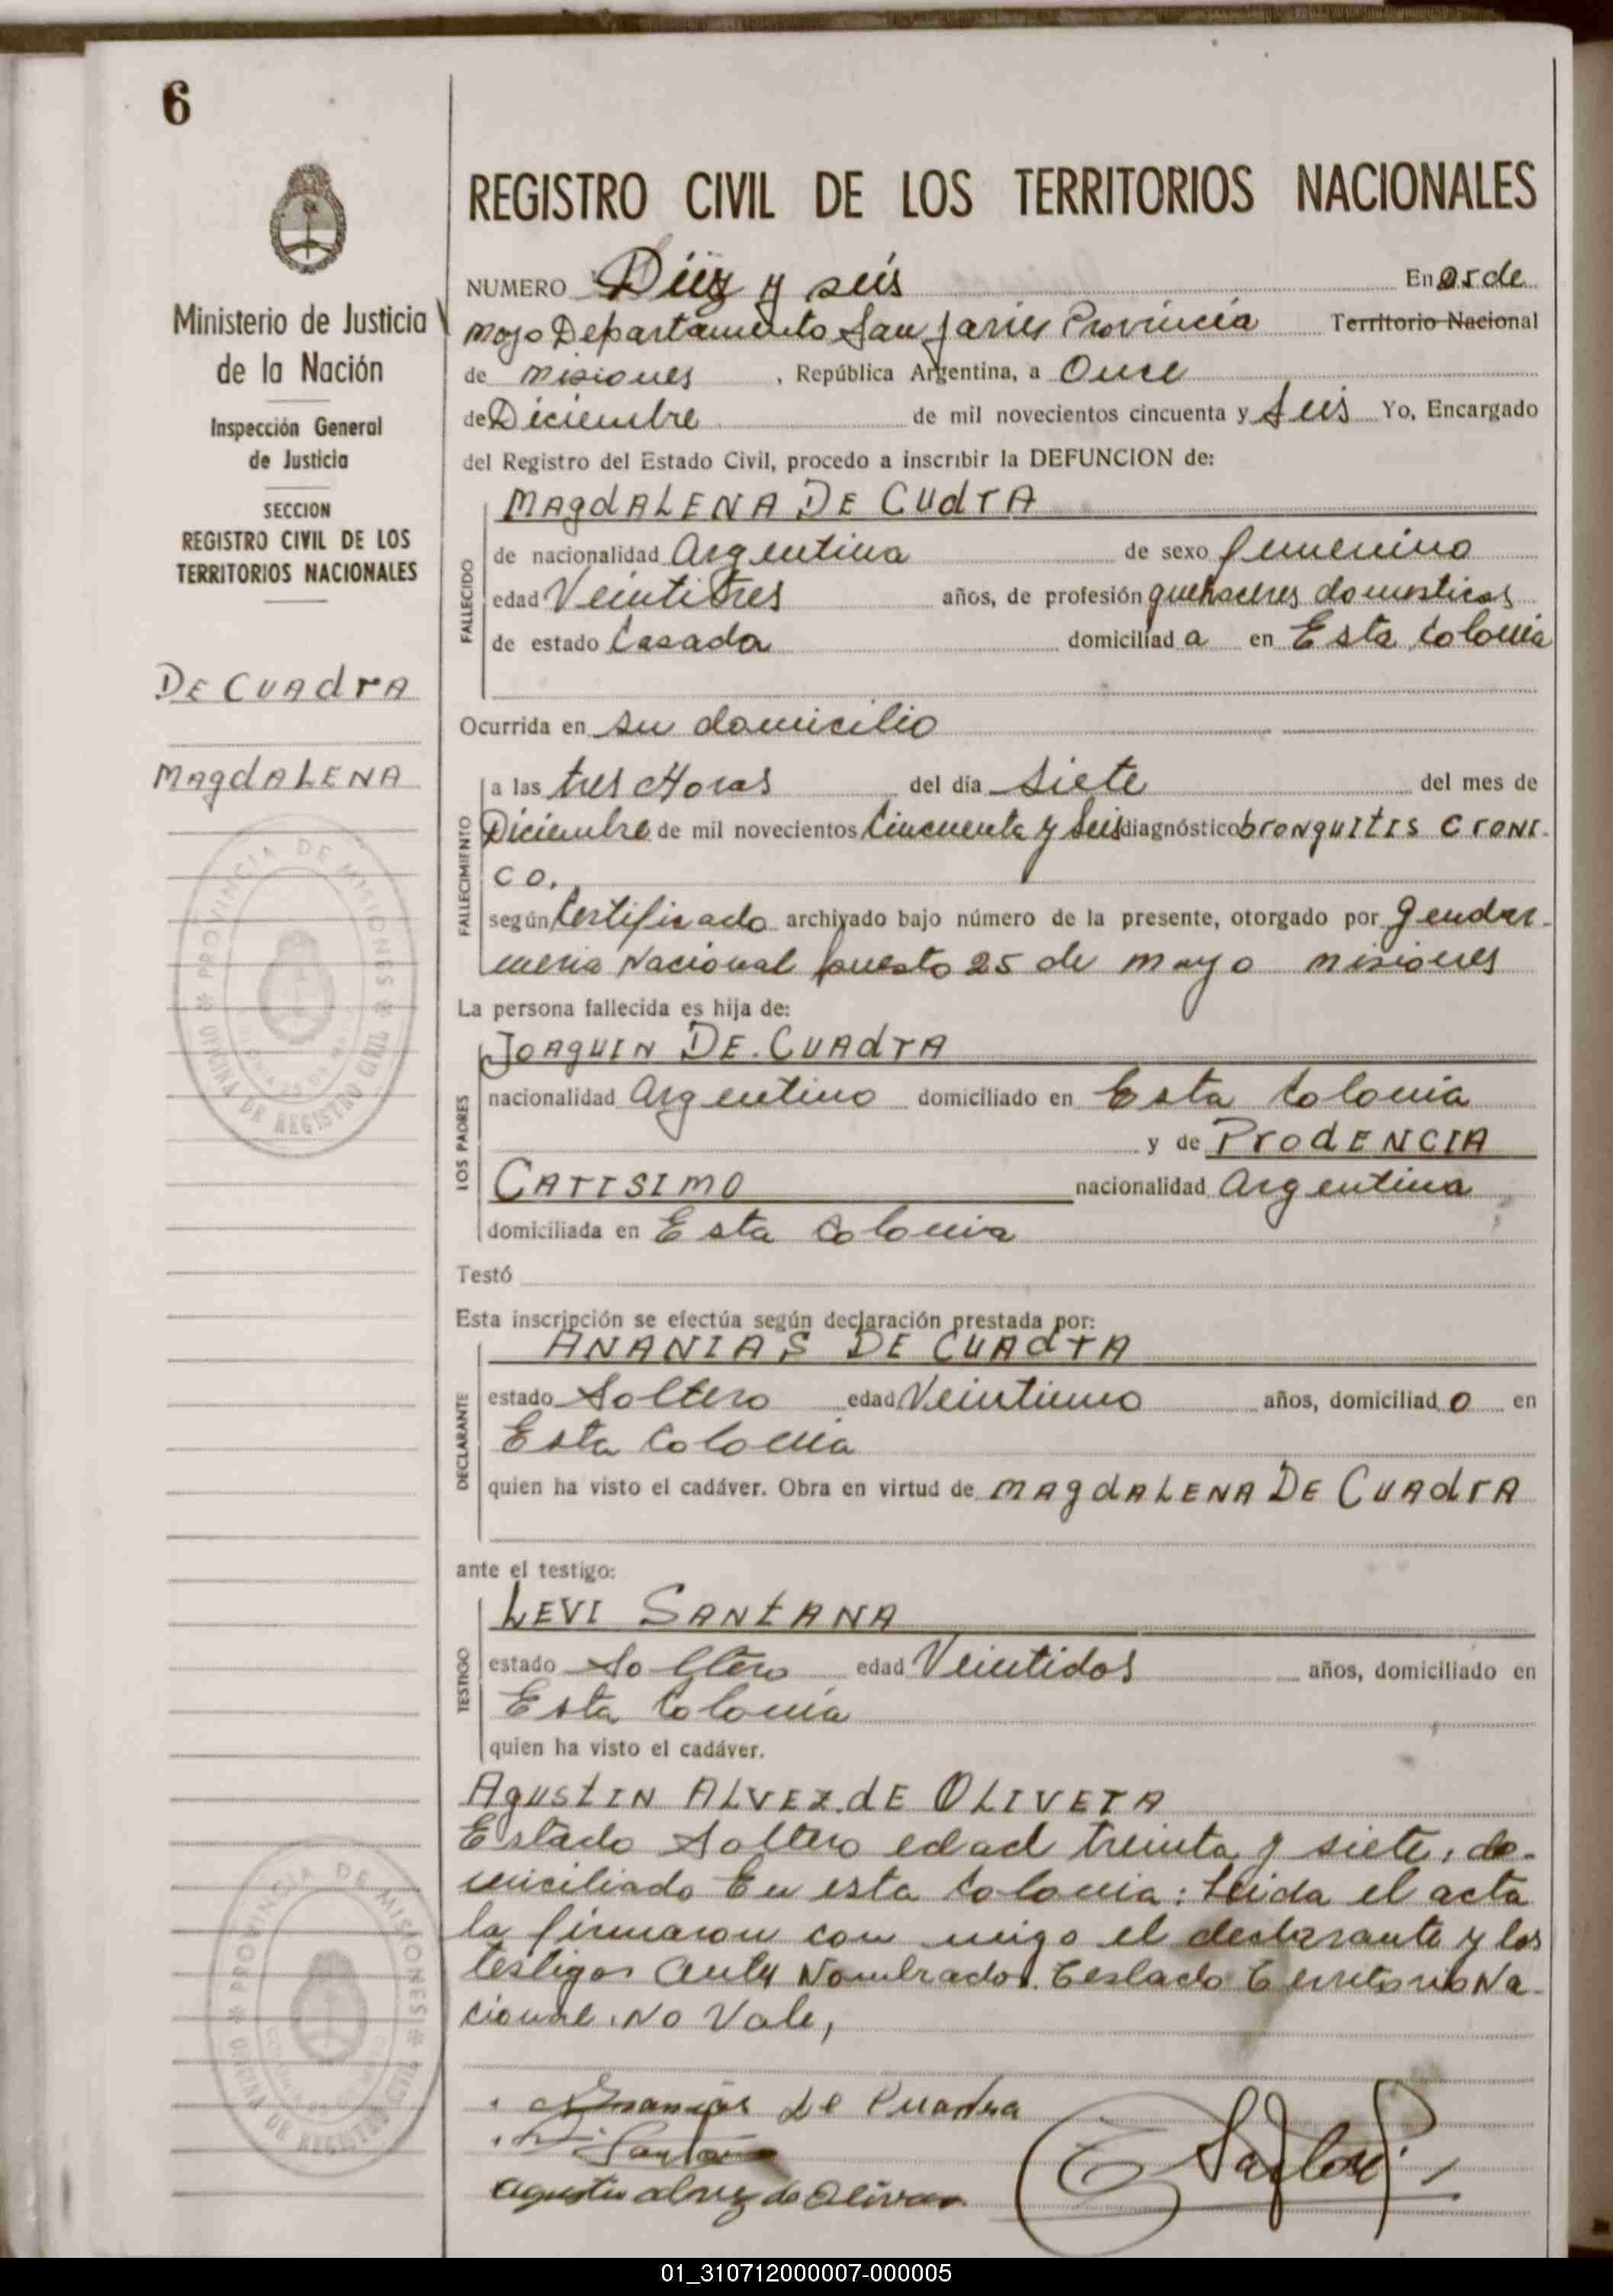 6
REGISTRO CIVIL DE LOS TERRITORIOS NACIONALES
Ministerio de Justicia
de la Nación
Inspección General
de Justicia
SECCION
REGISTRO CIVIL DE LOS
TERRITORIOS NACIONALES
DE CUAdrA
MAgdALENA
PROVINCIA DE MISIONES
OFICINA DE REGISTRO CIVIL
NUMERO Diez y seis En 25 de
mayo Departamento San Javier Provincia Territorio Nacional
de misiones , República Argentina, a Once
de Diciembre de mil novecientos cincuenta y Seis Yo, Encargado
del Registro del Estado Civil, procedo a inscribir la DEFUNCION de:
MAgdALENA DE CUdrA
FALLECIDO
de nacionalidad Argentina de sexo femenino
edad Veintitres años, de profesión quehaceres domesticos
de estado Casada domiciliad a en Esta Colonia
Ocurrida en su domicilio
FALLECIMIENTO
a las tres Horas del día Siete del mes de
Diciembre de mil novecientos Cincuenta y Seis diagnóstico brONquItIS CrONI-
CO.
según Certificado archivado bajo número de la presente, otorgado por gendar-
meria Nacional puesto 25 de mayo misiones
La persona fallecida es hija de:
LOS PADRES
JOAQUIN DE. CUAdrA
nacionalidad Argentino domiciliado en Esta Colonia
y de PrOdENCIA
CArISIMO nacionalidad Argentina
domiciliada en Esta Colonia
Testó
Esta inscripción se efectúa según declaración prestada por:
DECLARANTE
ANANIAS DE CUAdrA
estado Soltero edad Veintiuno años, domiciliad o en
Esta Colonia
quien ha visto el cadáver. Obra en virtud de MAgdALENA DE CUAdrA
ante el testigo:
TESTIGO
LEVI SANtANA
estado Soltero edad Veintidos años, domiciliado en
Esta Colonia
quien ha visto el cadáver.
AgUStIN ALVEZ. dE OLIVErA
Estado Soltero edad treinta y siete, do-
miciliado En esta Colonia: Leida el acta
la firmaron con migo el declarante y los
testigos Antes Nombrados. Testado Territorio Na-
cional. No Vale,
Ananias De Cuadra
Santana
Agustin alvez de Olivera
PROVINCIA DE MISIONES
OFICINA DE REGISTRO CIVIL
01_310712000007-000005